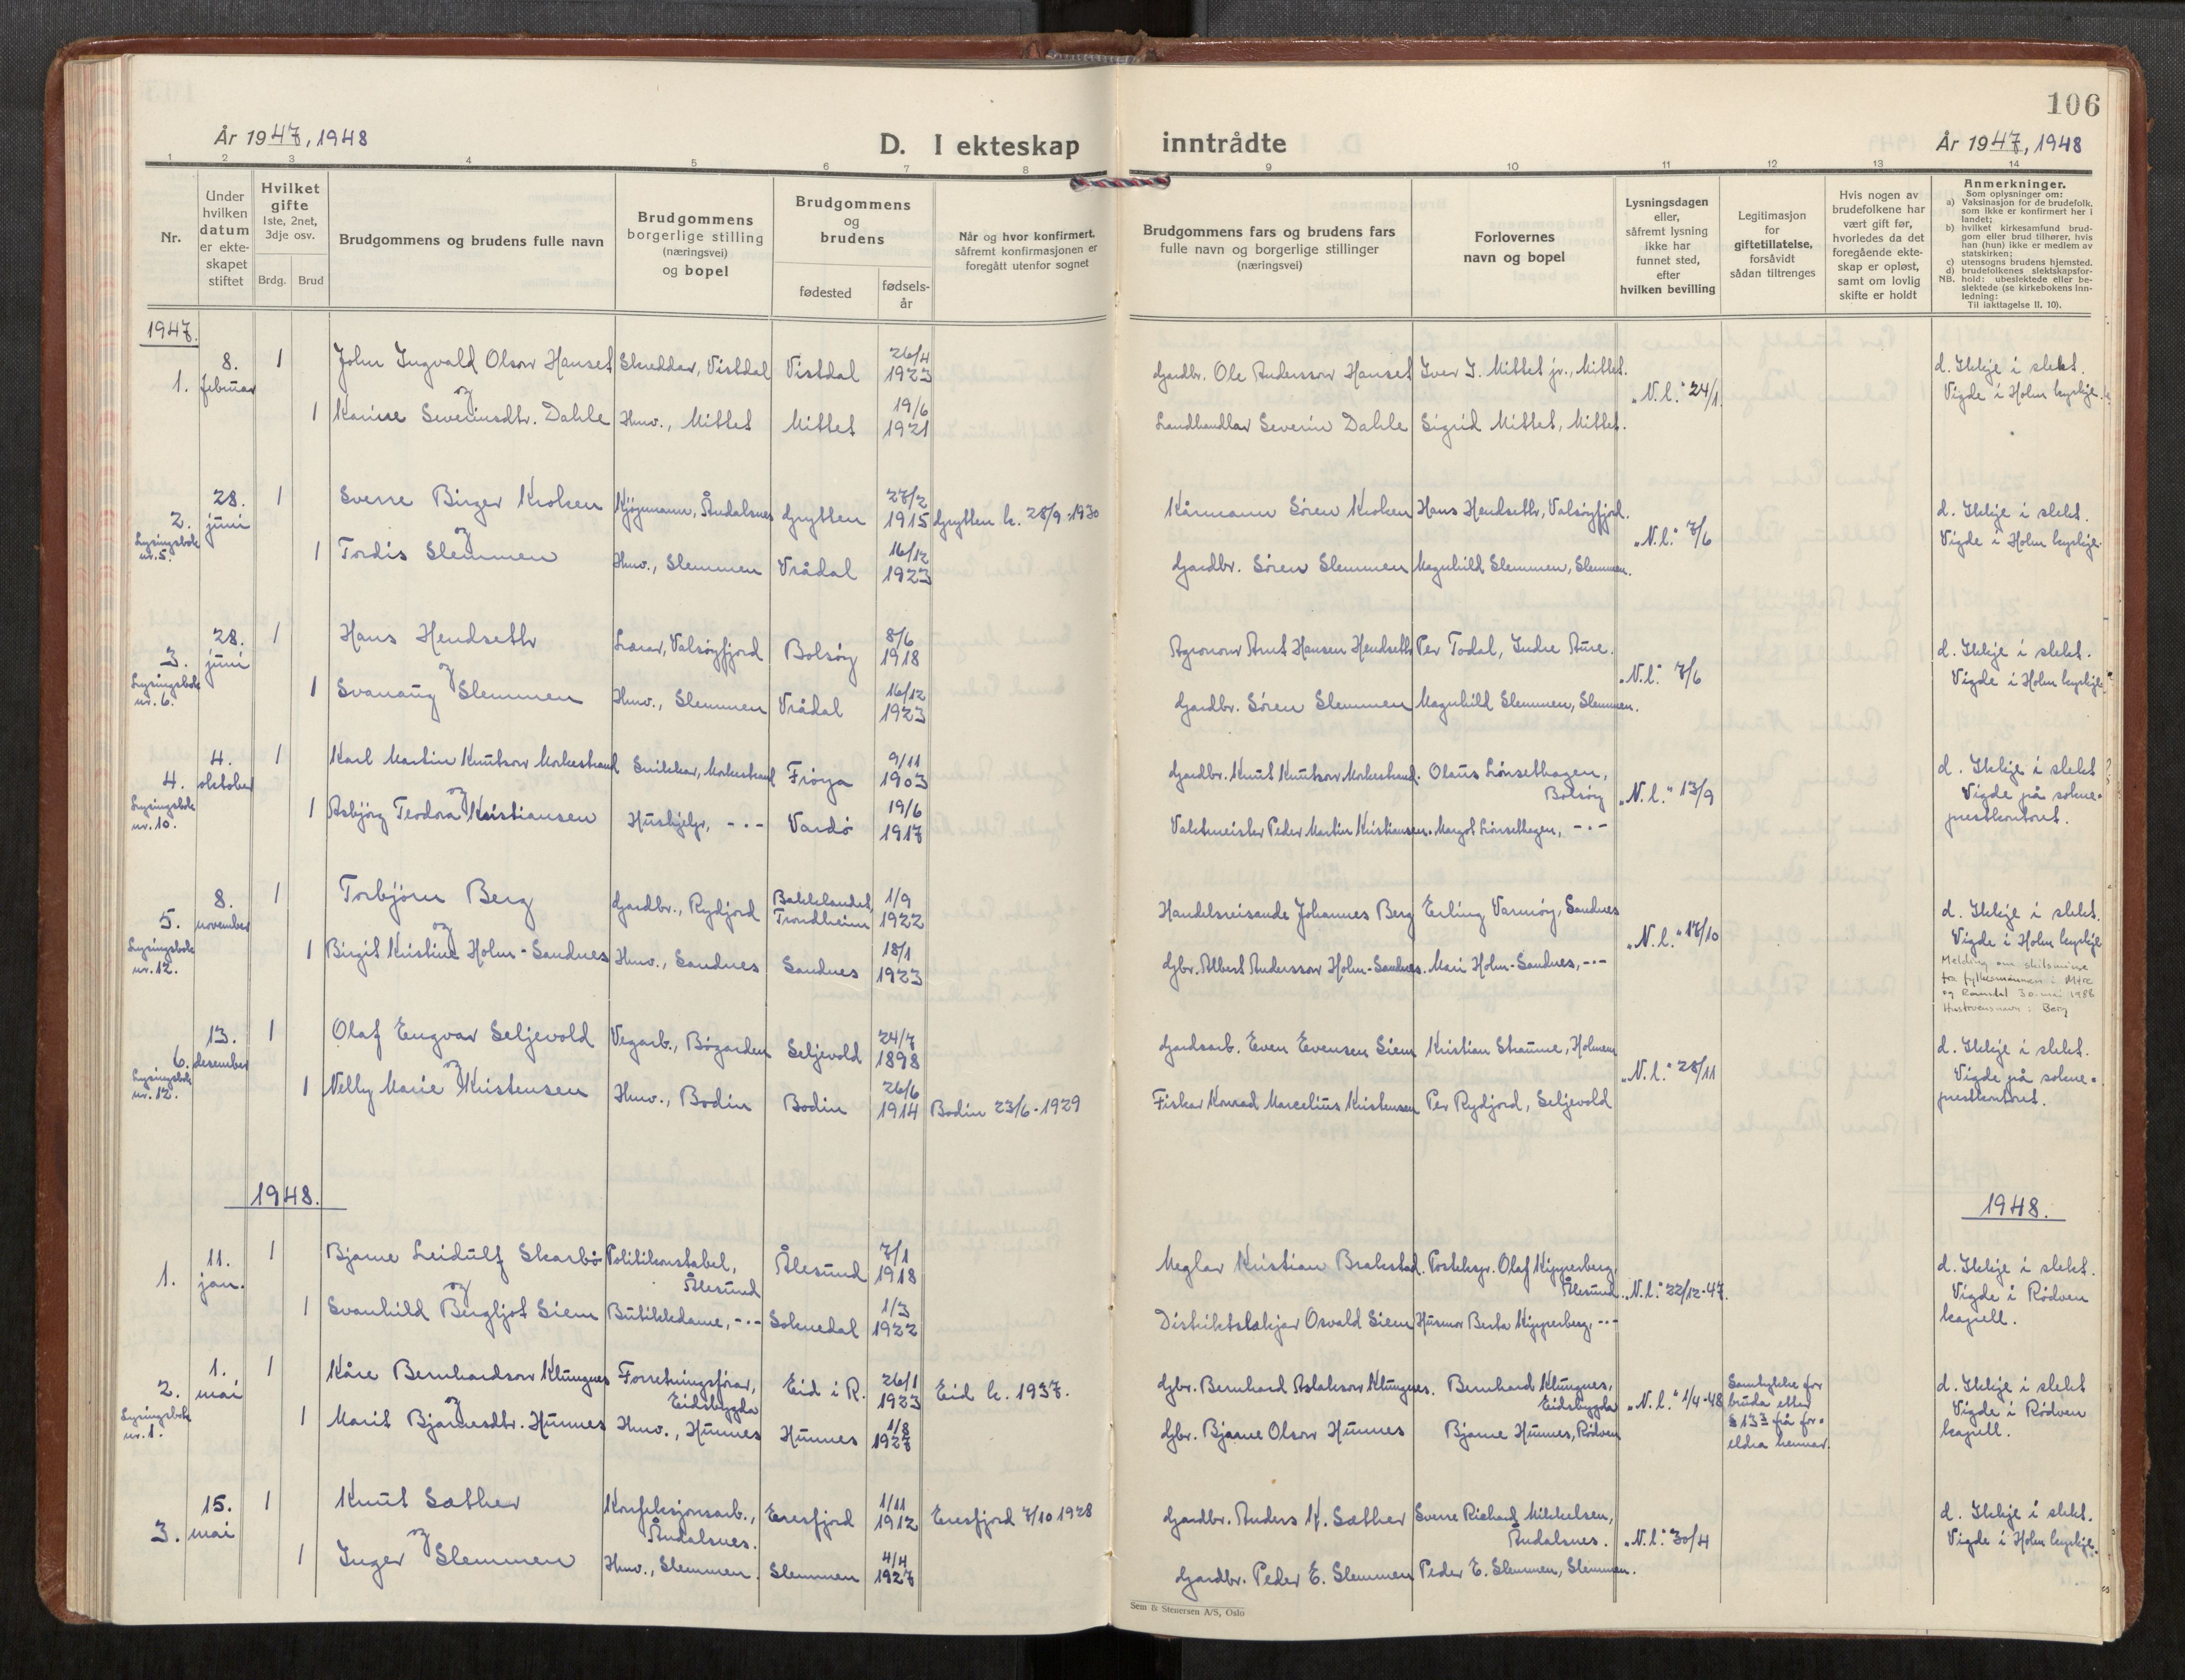 106
År 1947, 1948
D. I ekteskap inntrådte
År 1947, 1948
1 2 3 4 5 6 7 8 9 10 11 12 13 14
Nr.
Under hvilken datum er ekteskapet stiftet
Hvilket gifte
1ste, 2net, 3dje osv.
Brdg. Brud
Brudgommens og brudens fulle navn
Brudgommens borgerlige stilling (næringsvei) og bopel
Brudgommens og brudens
fødested
fødselsår
Når og hvor konfirmert, såfremt konfirmasjonen er foregått utenfor sognet
Brudgommens fars og brudens fars fulle navn og borgerlige stillinger (næringsvei)
Forlovernes navn og bopel
Lysningsdagen eller, såfremt lysning ikke har funnet sted, efter hvilken bevilling
Legitimasjon for giftetillatelse, forsåvidt sådan tiltrenges
Hvis nogen av brudefolkene har vært gift før, hvorledes da det foregående ekteskap er opløst, samt om lovlig skifte er holdt
Anmerkninger.
Som oplysninger om:
a) Vaksinasjon for de brudefolk, som ikke er konfirmert her i landet;
b) hvilket kirkesamfund brudgom eller brud tilhører, hvis han (hun) ikke er medlem av statskirken;
c) utensogns brudens hjemsted.
d) brudefolkenes slektskapsforhold: ubeslektede eller beslektede (se kirkebokens innledning:
NB.
Til iakttagelse II. 10).
1947.
1. 8. februar 1 John Ingvald Olson Hanset Skreddar, Vistdal Vistdal 26/4 1923 Gardbr. Ole Andersson Hanset Iver J. Mittet jr., Mittet. "N.l." 24/1 d. Ikkje i slekt. Vigde i Holm kyrkje.
og
1 Karine Severinsdtr. Dahle Husv., Mittet Mittet 19/6 1921 Landhandlar Severin Dahle Sigrid Mittet, Mittet.
2. 28. juni 1 Sverre Birger Kroken Kjøpmann, Åndalsnes Grytten 27/2 1915 Grytten k. 28/9-1930 Kårmann Sören Kroken Hans Hendseth, Valsøyfjord. "N.l." 7/6 d. Ikkje i slekt. Vigde i Holm kyrkje.
Lysingsbok nr. 5.
og
1 Tordis Slemmen Husv., Slemmen Vrådal 16/12 1923 Gardbr. Sören Slemmen Magnhild Slemmen, Slemmen.
3. 28. juni 1 Hans Hendseth Lærar, Valsøyfjord Bolsøy 8/6 1918 Agronom Arnt Hansen Hendseth Per Todal, Indre Aure. "N.l." 7/6 d. Ikkje i slekt. Vigde i Holm kyrkje
Lysingsbok nr. 6.
og
1 Svanaug Slemmen Husv., Slemmen Vrådal 16/12 1923 Gardbr. Sören Slemmen Magnhild Slemmen, Slemmen.
4. 4. oktober 1 Karl Martin Knutson Morkestrand Snikkar, Morkestrand Frøya 9/11 1903 Gardbr. Knut Knutson Morkestrand. Olaus Lönsethagen, Bolsøy "N.l." 13/9 d. Ikkje i slekt Vigde på sokneprestkontoret.
Lysingsbok nr. 10.
og
1 Asbjörg Teodora Kristiansen Hushjelp, -"- Vardö 19/6 1917 Vaktmeister Peder Martin Kristiansen. Margot Lönsethagen, -"-
5. 8. november 1 Torbjörn Berg Gardbr., Rydjord Bakklandet, Trondheim 1/9 1922 Handelsreisande Johannes Berg Erling Varmøy, Sandnes "N.l." 17/10 d. Ikkje i slekt. Vigde i Holm kyrkje
Lysingsbok nr. 12.
og
1 Birgit Kristine Holm-Sandnes Husv., Sandnes Sandnes 18/1 1923 Gbr. Albert Andersson Holm-Sandnes. Mari Holm-Sandnes, -"-
Melding om skilsmisse fra fylkesmannen i Møre og Romsdal 30. mai 1988
Hustruens navn: Berg
6. 13. desember 1 Olaf Engvar Seljevold Vegarb., Bøgarden Seljevold 24/7 1898 Gardsarb. Even Evensen Siem Kristian Straume, Holmem "N.l." 28/11 d. Ikkje i slekt. Vigde på sokneprestkontoret.
Lysingsbok nr. 12.
og
1 Nelly Marie Kristensen Husv., Bodin Bodin 26/6 1914 Bodin 23/6-1929 Fiskar Konrad Marcelius Kristensen Per Rydjord, Seljevold
1948. 1948.
1. 11. jan. 1 Bjarne Leidulf Skarbö Politikonstabel, Ålesund Ålesund 7/1 1918 Meglar Kristian Brakstad. Posteksp. Olaf Kipperberg, Ålesund "N.l." 22/12-47. d. Ikkje i slekt. Vigde i Rödven kapell.
og
1 Svanhild Bergljot Siem Butikkdame, -"- Soknedal 1/3 1922 Distriktslækjar Osvald Siem Husmor Berta Kipperberg, -"-
2. 1. mai 1 Kåre Bernhardson Klungnes Forretningsförar, Eidsbygda Eid i R. 26/1 1923 Eid k. 1937. Gbr. Bernhard Aslakson Klungnes. Bernhard Klungnes, Eidsbygda "N.l." 1/4-48 Samtykke for bruda etter § 133 frå foreldra hennar. d. Ikkje i slekt Vigde i Rödven kapell.
Lysingsbok nr. 1.
og
1 Marit Bjarnesdtr. Hunnes Husv., Hunnes Hunnes 1/8 1927 Gbr. Bjarne Olson Hunnes Bjarne Hunnes, Rödven
3. 15. mai 1 Knut Sæther Konfeksjonsarb., Åndalsnes. Eresfjord 1/11 1912 Eresfjord 7/10 1928 Gardbr. Anders K. Sæther Sverre Richard Mikkelsen, Åndalsnes. "N.l." 30/4 d. Ikkje i slekt. Vigde i Holm kyrkje.
og
1 Inger Slemmen Husv., Slemmen. Slemmen 4/4 1927 Gardbr. Peder E. Slemmen Peder E. Slemmen, Slemmen.
Sem & Stenersen A/S, Oslo